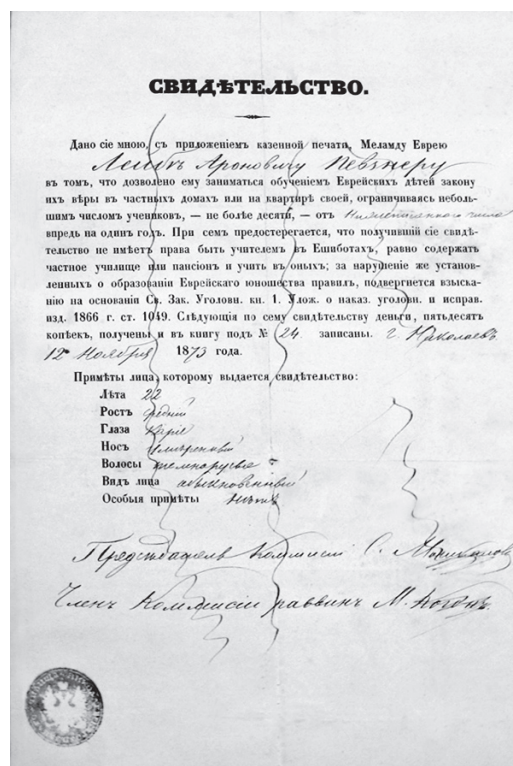 СВИДѢТЕЛЬСТВО.
Дано сіе мною, съ приложеніемъ казенной печати, Меламду Еврею
Лейбѣ Ароновичу Певзнеру
въ томъ, что дозволено ему заниматься обученіемъ Еврейскихъ дѣтей закону
ихъ вѣры въ частныхъ домахъ или на квартирѣ своей, ограничиваясь неболь-
шимъ числомъ учениковъ, — не болѣе десяти, — от нижеписаннаго числа
впредь на одинъ годъ. При семъ предостерегается, что получившій сіе свидѣ-
тельство не имѣетъ права быть учителемъ въ Ешиботахъ, равно содержать
частное училище или пансіонъ и учить въ оныхъ; за нарушеніе же установ-
ленныхъ о образованіи Еврейскаго юношества правилъ, подвергнется взыска-
нію на основаніи Св. Зак. Уголовн. кн. 1. Улож. о наказ. уголовн. и исправ.
изд. 1866 г. ст. 1049. Слѣдующія по сему свидѣтельству деньги, пятьдесятъ
копѣекъ, получены и въ книгу подъ № 24. записаны. г. Николаевъ
12го Ноября 1873 года.
Примѣты лица, которому выдается свидѣтельство:
Лѣта 22
Ростъ средній
Глаза каріе
Носъ умѣренный
Волосы темнорусые
Видъ лица обыкновенный
Особыя примѣты нѣтъ
Предсѣдатель Комиссіи С.
Членъ Коммиссіи раввинъ М. Когонъ.